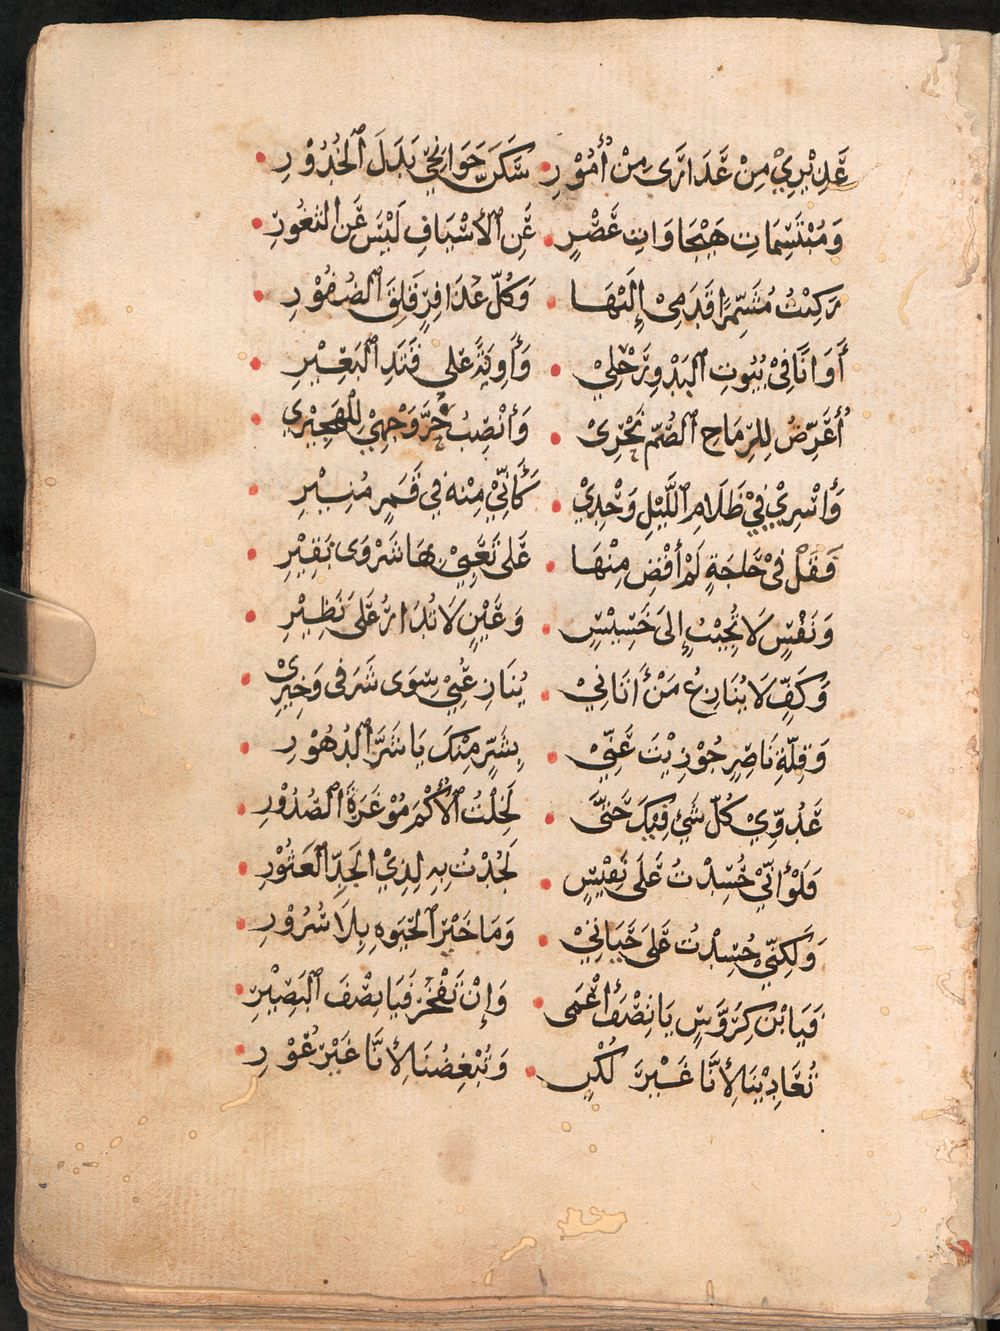 عَذِيْرِيْ مِنْ عَذَارَى مِنْ أُمُوْرِ • سَكَنَّ جَوَانِحِيْ بَدَلَ ٱلْخُدُوْرِ •
وَمُبْتَسِمَاتِ هَيْجَاوَاتِ عَصْرٍ • عَنِ ٱلْأَسْيَافِ لَيْسَ عَنِ الثُغُوْرِ •
رَكِبْتُ مُشَمِّرًا قَدَمِىْ إِلَيْهَا • وَكُلَّ عُذَافِرٍ قَلِقَ ٱلضُفُوْرِ •
أَوَانًا فِىْ بُيُوتِ ٱلْبَدْوِ رَحْلِيْ • وَأَوِنَةً عَلى قَتَدِ ٱلْبَعِيْرِ •
أُعَرِّضُ لِلرِّمَاحِ ٱلصُّمِّ نَحْرِىْ • وَأَنْصِبُ حُرَّ وَجْهِيْ لِلْهَجِيْرِي •
وَأَسْرِيْ فِيْ ظَلَامِ ٱللَّيْلِ وَحْدِيْ • كَأَنِّيْ مِنْه فِي قَمَرٍ مُنِيْرِ •
فَقُلْ فِىْ حَاجَةٍ لَمْ أَقْضِ مِنْهَا • عَلى تَعَبِيْ بِهَا شَرْوَى نَقِيْرِ •
وَنَفْسٍ لَا تُجِيْبُ إِلىَ خَسِيْسٍ • وَعَيْنٍ لَا تُدَارُ عَلَى نَظِيْرِ •
وَكَفٍّ لَا يُنَازِعُ مَنْ أَتَانِيْ • يُنَازِعُنِيْ سِوَى شَرَفى وَخِيْرِىْ •
وَقِلَّةِ نَاصِرٍ جُوْزِيْتَ عَنِّيْ • بِشَرٍّ مِنْكَ يَا شَرَّ ٱلدُهُوْرِ •
عَدُوِّيْ كُلُّ شَيْءٍ فِيْكَ حَتَّىَ • لَخِلْتُ ٱلْأُكْمَ مُوْغَرَةَ ٱلصُّدُوْرِ •
فَلَوْ أَنِّيْ حُسِدْتُ عَلَى نَفِيْسٍ • لَجُدْتُ بِهِ لِذِيْ الْجَدِّ ٱلْعَثُوْرِ •
وَلَكِنِّيْ حُسِدْتُ عَلىَ حَيَاتِيْ • وَمَا خَيْرُ ٱلْحَيَوةِ بِلَا سُرُوْرِ •
فَيَابْنَ كَرَوَّسٍ يَا نِصْفَ أَعْمَى • وَإِنْ تَفْخَرْ فَيَا نِصْفَ ٱلْبَصِيْرِ •
تُعَادِيْنَا لِأَنَّا غَيْرَ لُكْنٍ • وَتُبْغِضُنَا لِأَنَّا غَيْرُ عُوْرِ •